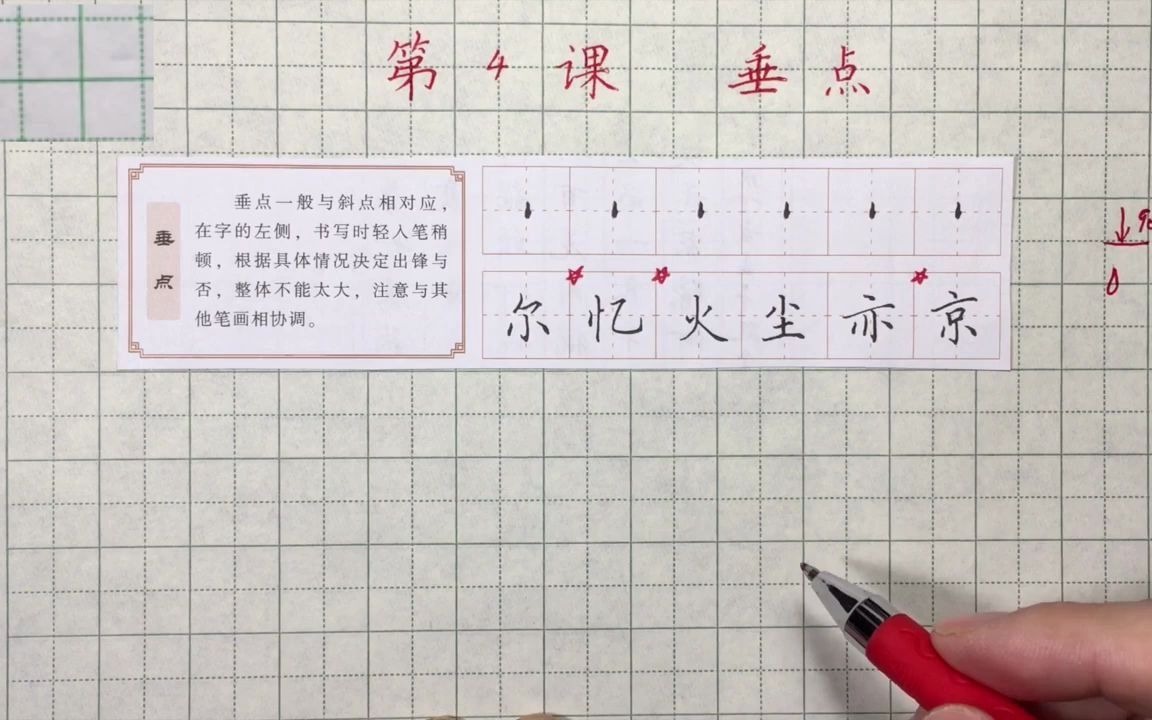 第4课 垂点
垂点
垂点一般与斜点相对应，
在字的左侧，书写时轻入笔稍
顿，根据具体情况决定出锋与
否，整体不能太大，注意与其
他笔画相协调。
尔忆火尘亦京